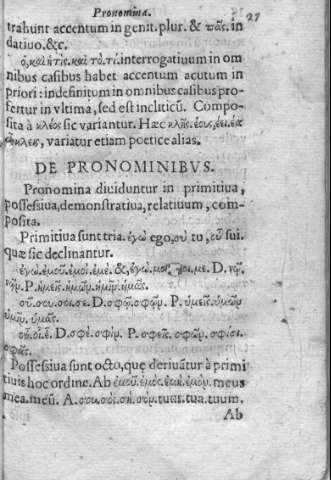 Pronomina. 27
trahunt accentum in genit. plur. & πᾶς. in
datiuo. &c.
ὁ, καὶ ἡ τὶς. καὶ τὸ. τὶ. interrogatiuum in om
nibus casibus habet accentum acutum in
priori: indefinitum in omnibus casibus pro-
fertur in vltima, sed est incliticũ. Compo-
sita à κλέος sic variantur. Hæc
variatur etiam poetice alias.
DE PRONOMINIBVS.
Pronomina diuiduntur in primitiua,
possessiua, demonstratiua, relatiuum, com-
posita.
Primitiua sunt tria. ἐγώ ego, σὺ tu, οὗ sui.
quæ sic declinantur.
ἐγώ. ἐμοῦ. ἐμοὶ. ἐμὲ. &, ἐγώ. μοῦ. μοι. με. D. νῶϊ.
νῶϊν. P. ἡμεῖς. ἡμῶν. ἡμῖν. ἡμᾶς.
σὺ. σου. σοι. σε. D. σφῶϊ. σφῶϊν. P. ὑμεῖς. ὑμῶν
ὑμῖν. ὑμᾶς.
οὗ. οἷ. ἓ. D. σφὲ. σφὶν. P. σφεῖς. σφῶν. σφίσι.
σφᾶς.
Possessiua sunt octo, quę deriuãtur à primi
tiuis hoc ordine. Ab ἐμοῦ. ἐμὸς. ἐμὴ. ἐμὸν. meus
mea. meũ. A. σου. σὸς. σὴ. σὸν. tuus. tua. tuum.
Ab